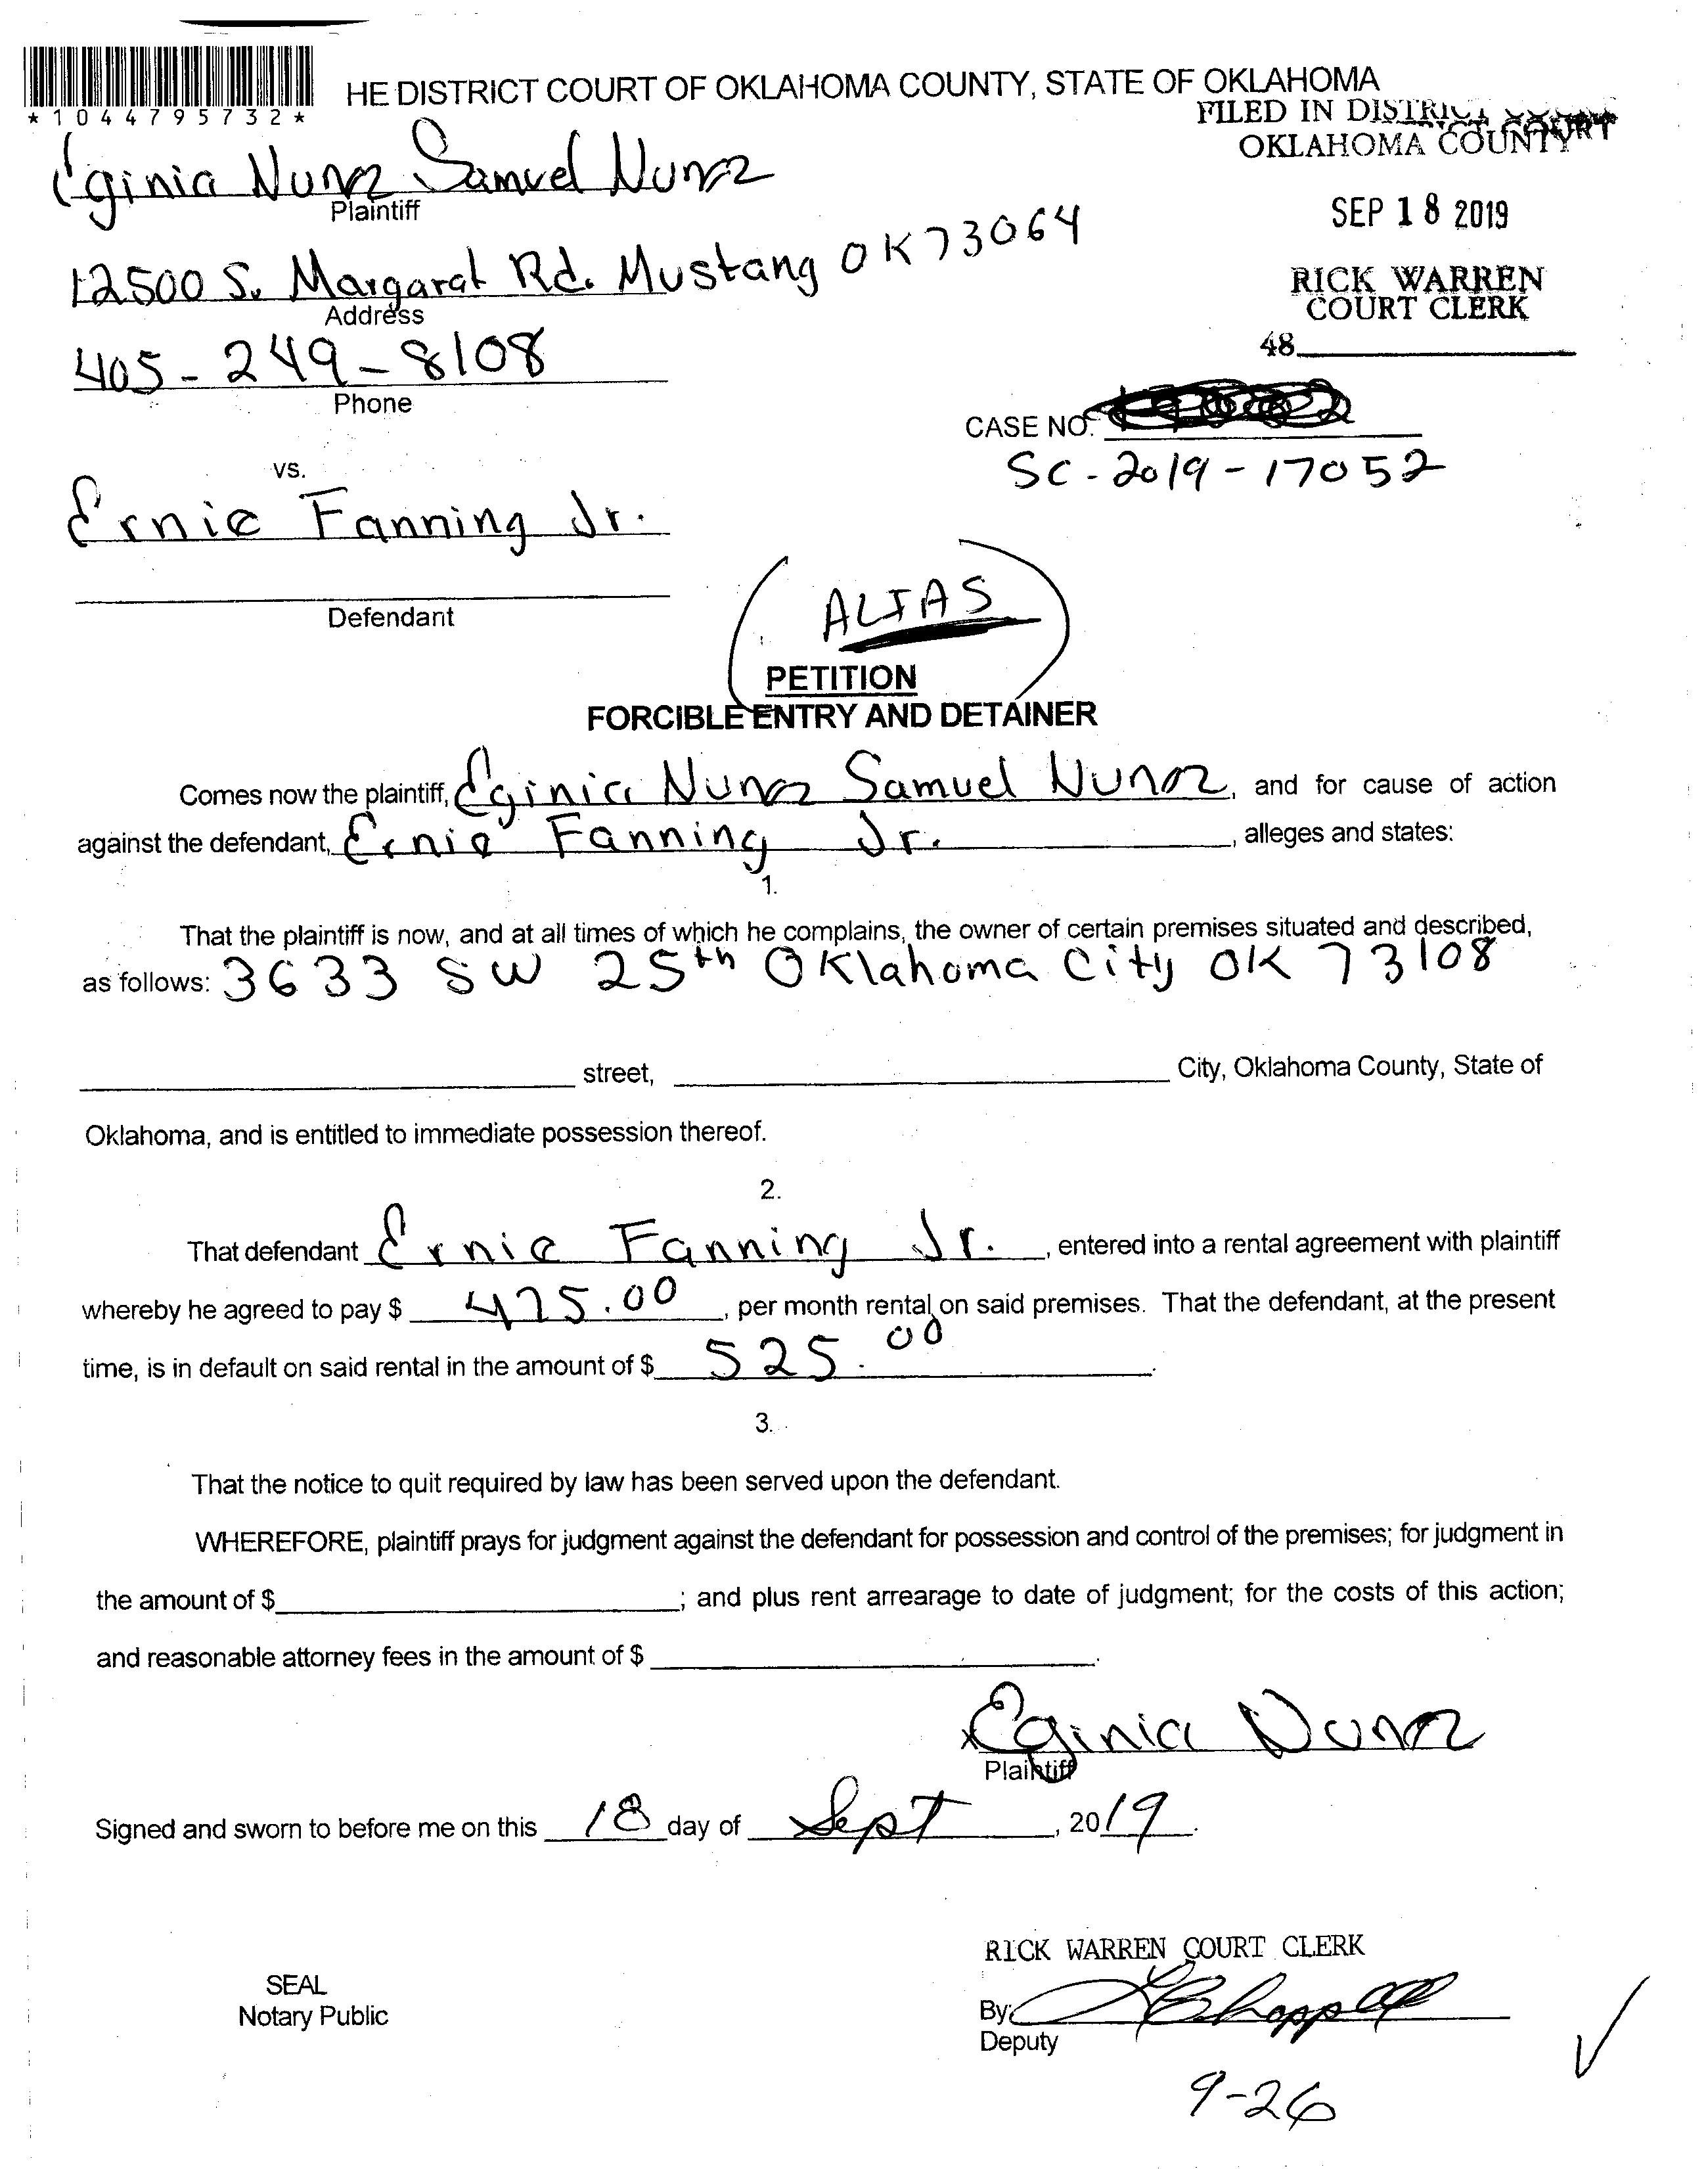 *1044795732*
HE DISTRICT COURT OF OKLAHOMA COUNTY, STATE OF OKLAHOMA
FILED IN DISTRICT COURT
OKLAHOMA COUNTY
Eginia Nunez Samuel Nunez
Plaintiff
SEP 18 2019
12500 S. Margaret Rd. Mustang OK 73064
Address
RICK WARREN
COURT CLERK
48
405-249-8108
Phone
CASE NO.
SC-2019-17052
vs.
Ernie Fanning Jr.
Defendant
ALIAS
PETITION
FORCIBLE ENTRY AND DETAINER
Comes now the plaintiff, Eginia Nunez Samuel Nunez, and for cause of action
against the defendant, Ernie Fanning Jr., alleges and states:
1.
That the plaintiff is now, and at all times of which he complains, the owner of certain premises situated and described,
as follows: 3633 SW 25th Oklahoma City OK 73108
street, City, Oklahoma County, State of
Oklahoma, and is entitled to immediate possession thereof.
2.
That defendant Ernie Fanning Jr., entered into a rental agreement with plaintiff
whereby he agreed to pay $ 475.00, per month rental on said premises. That the defendant, at the present
time, is in default on said rental in the amount of $ 525.00.
3.
That the notice to quit required by law has been served upon the defendant.
WHEREFORE, plaintiff prays for judgment against the defendant for possession and control of the premises; for judgment in
the amount of $ ; and plus rent arrearage to date of judgment; for the costs of this action;
and reasonable attorney fees in the amount of $ .
x Eginia Nunez
Plaintiff
Signed and sworn to before me on this 18 day of Sept, 2019.
RICK WARREN COURT CLERK
SEAL
Notary Public
By:
Deputy
9-26